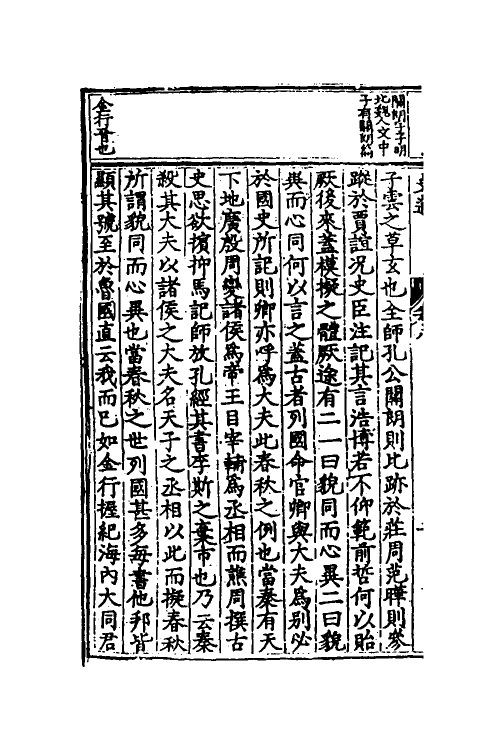 關朗字子明
北魏人文中
子有關朗篇
金行晉也
子雲之草玄也全師孔公關朗則比跡於莊周范曄則參
蹤於賈誼況史臣注記其言浩博若不仰範前哲何以貽
厥後來蓋模擬之體厥途有二一曰貌同而心異二曰貌
異而心同何以言之蓋古者列國命官卿與大夫爲別必
於國史所記則卿亦呼爲大夫此春秋之例也當秦有天
下地廣殷周變諸侯爲帝王目宰輔爲丞相而譙周撰古
史思欲擯抑馬記師放孔經其書李斯之棄市也乃云秦
殺其大夫以諸侯之大夫名天子之丞相以此而擬春秋
所謂貌同而心異也當春秋之世列國甚多每書他邦皆
顯其號至於魯國直云我而已如金行握紀海內大同君